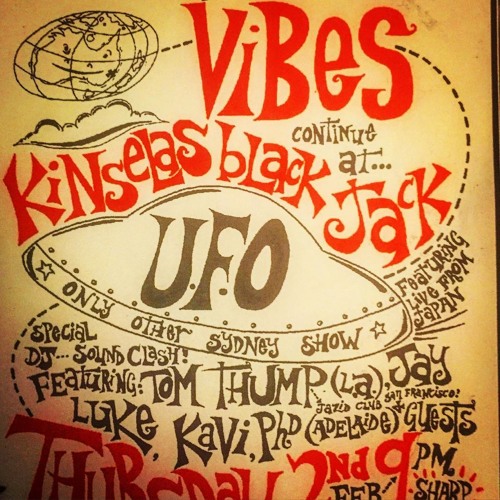 VIBES
CONTINUE
AT...
KINSELAS BLACK JACK
U.F.O
FEATURING
LIVE FROM
JAPAN
ONLY OTHER SYDNEY SHOW
SPECIAL
DJ... SOUND CLASH!
FEATURING: TOM THUMP (L.A.), JAY
JAZID CLUB SAN FRANCISCO!
LUKE, KAVI, PhD (ADELAIDE) + GUESTS
THURSDAY 2nd 9 PM
FEB SHARP